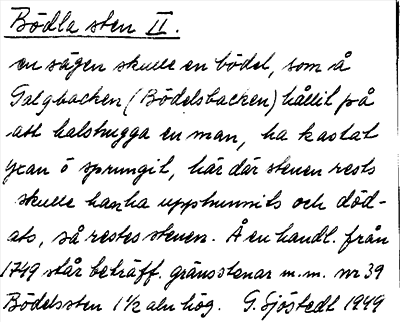 Bödla sten II.
en sägen skulle en bödel, som å
Galgbacken (Bödelsbacken) hållit på
att halshugga en man, ha kastat
yxan ö sprungit, här där stenen rests
skulle han ha upphunnits och död-
ats, så restes stenen. Å en handl. från
1749 står beträff. gränsstenar m.m. nr 39
Bödelssten 1½ aln hög. G. Sjöstedt 1949